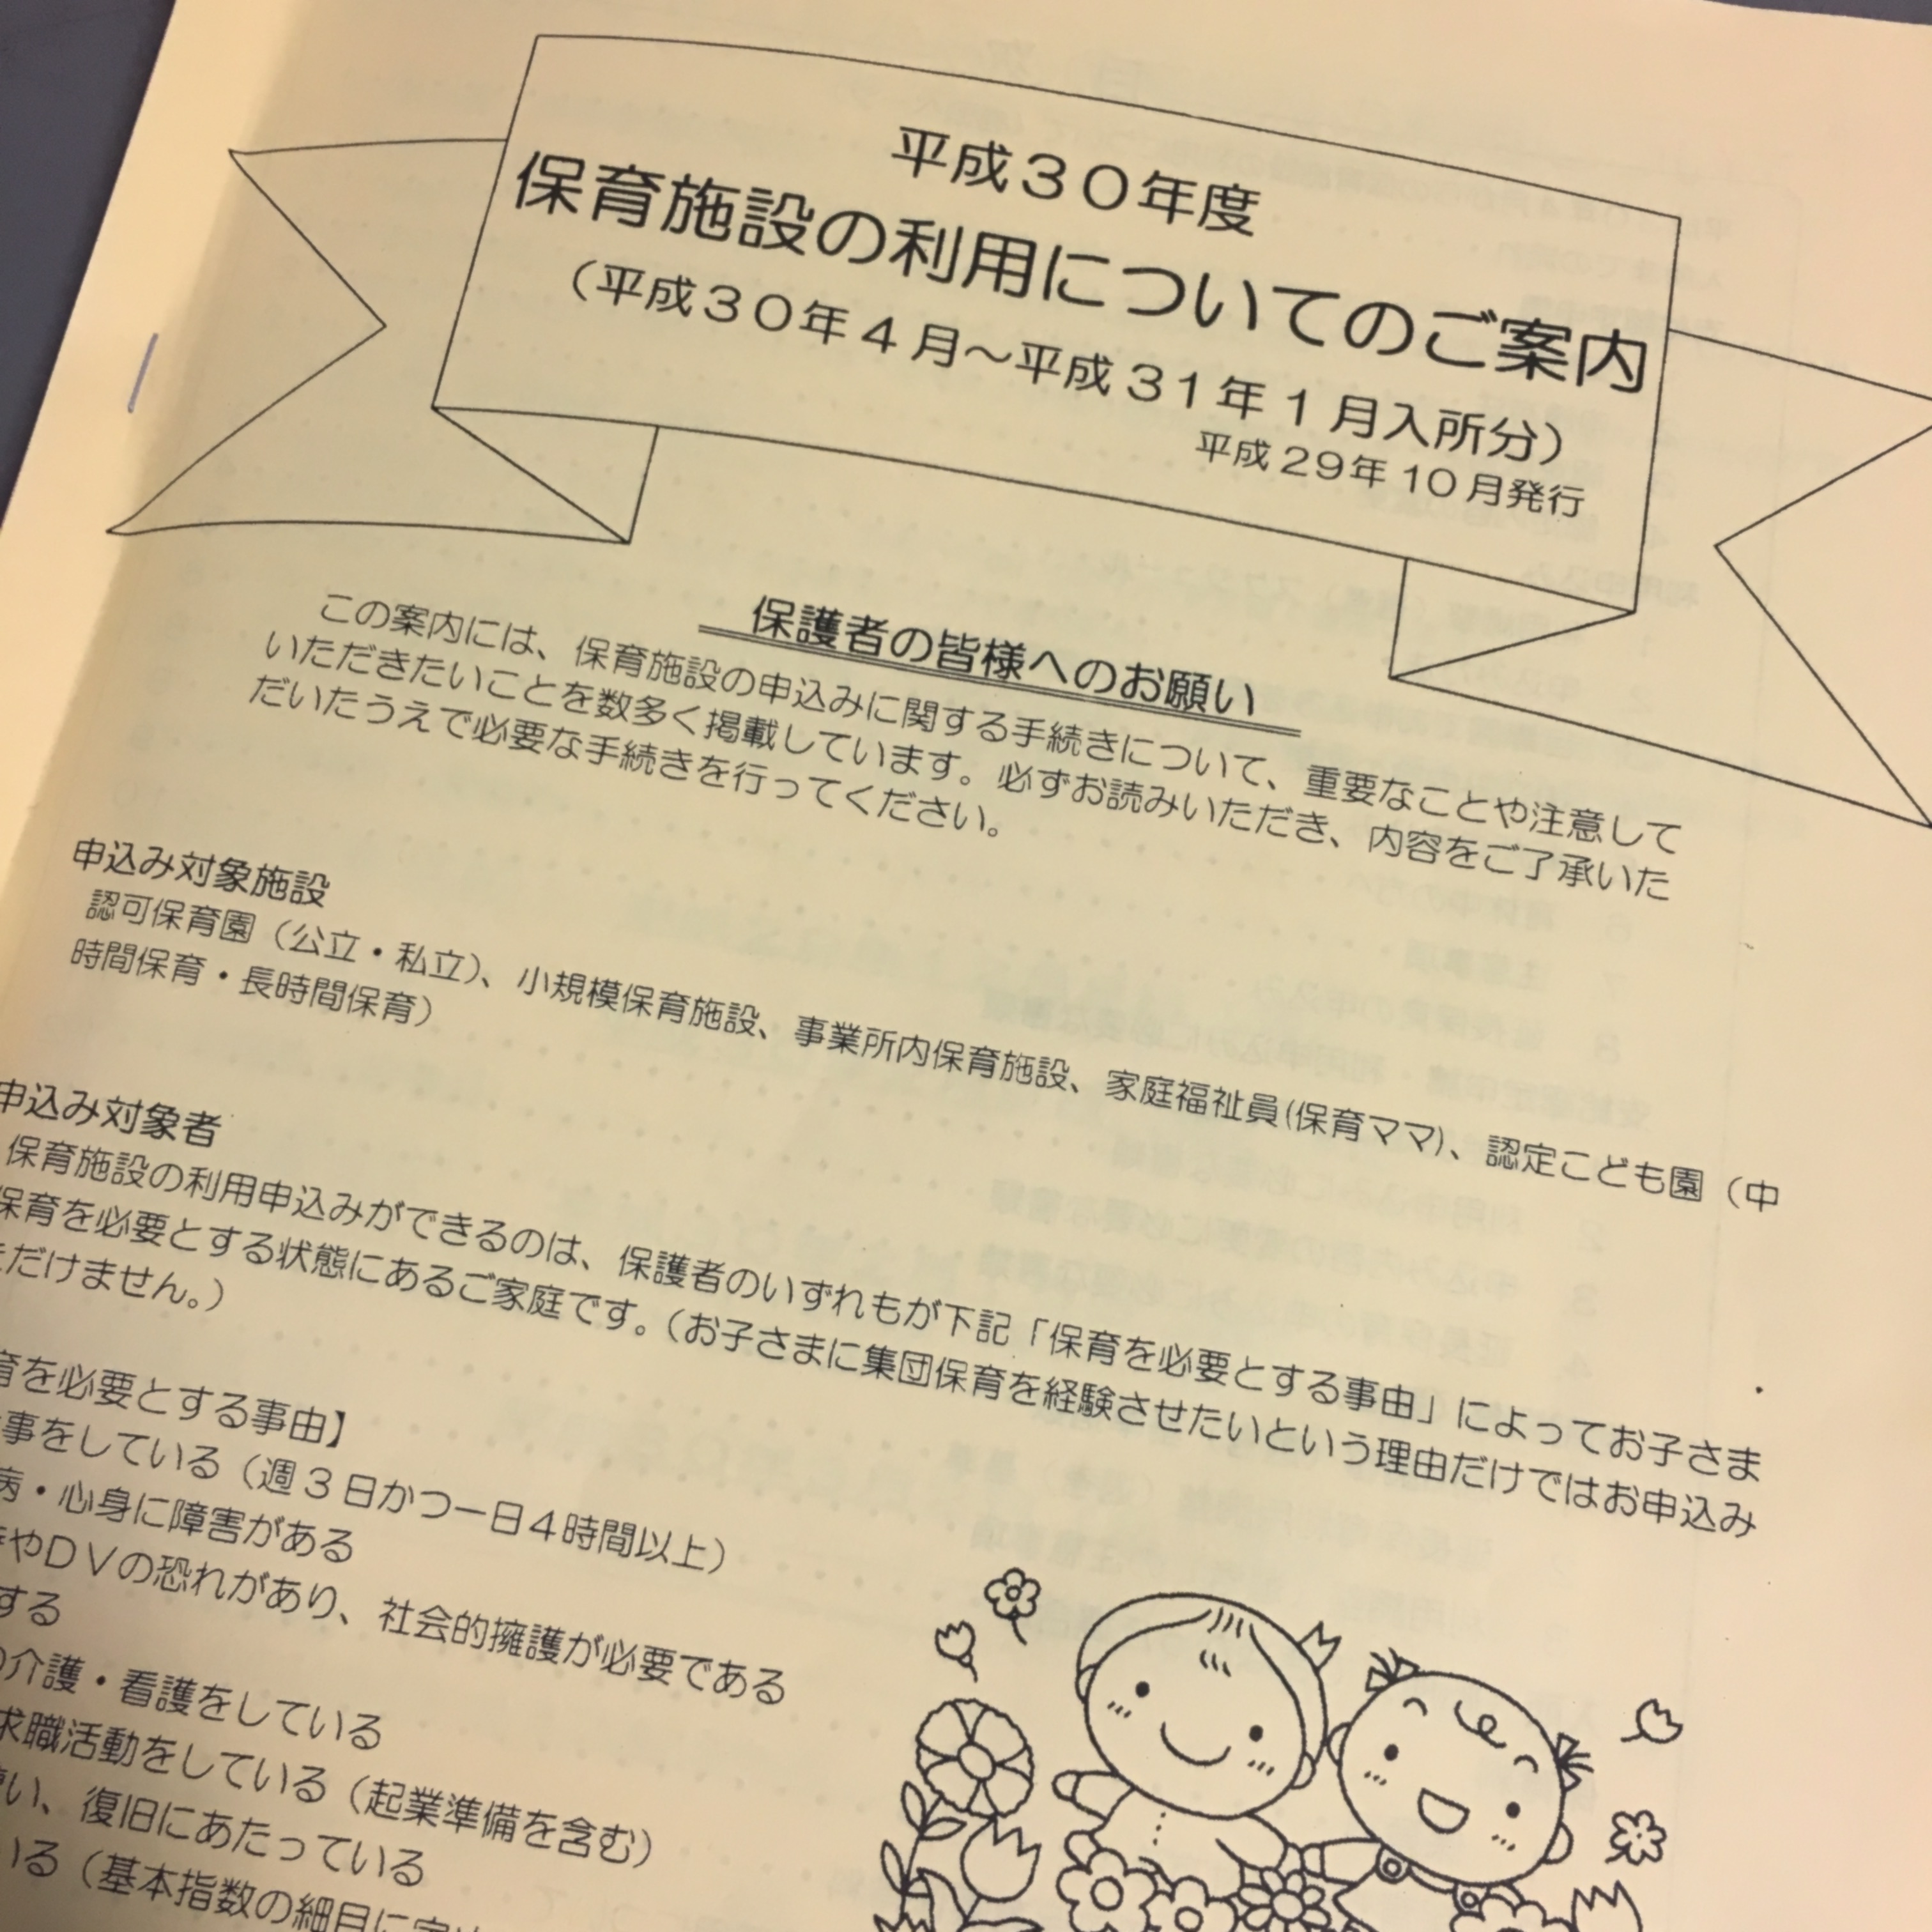 平成３０年度
保育施設の利用についてのご案内
（平成３０年４月～平成３１年１月入所分）
平成２９年１０月発行
保護者の皆様へのお願い
この案内には、保育施設の申込みに関する手続きについて、重要なことや注意して
いただきたいことを数多く掲載しています。必ずお読みいただき、内容をご了承いた
だいたうえで必要な手続きを行ってください。
申込み対象施設
認可保育園（公立・私立）、小規模保育施設、事業所内保育施設、家庭福祉員(保育ママ)、認定こども園（中
時間保育・長時間保育）
申込み対象者
保育施設の利用申込みができるのは、保護者のいずれもが下記「保育を必要とする事由」によってお子さま
保育を必要とする状態にあるご家庭です。（お子さまに集団保育を経験させたいという理由だけではお申込み
ただけません。）
育を必要とする事由】
事をしている（週３日かつ一日４時間以上）
病・心身に障害がある
やＤＶの恐れがあり、社会的擁護が必要である
する
介護・看護をしている
求職活動をしている（起業準備を含む）
い、復旧にあたっている
いる（基本指数の細目に